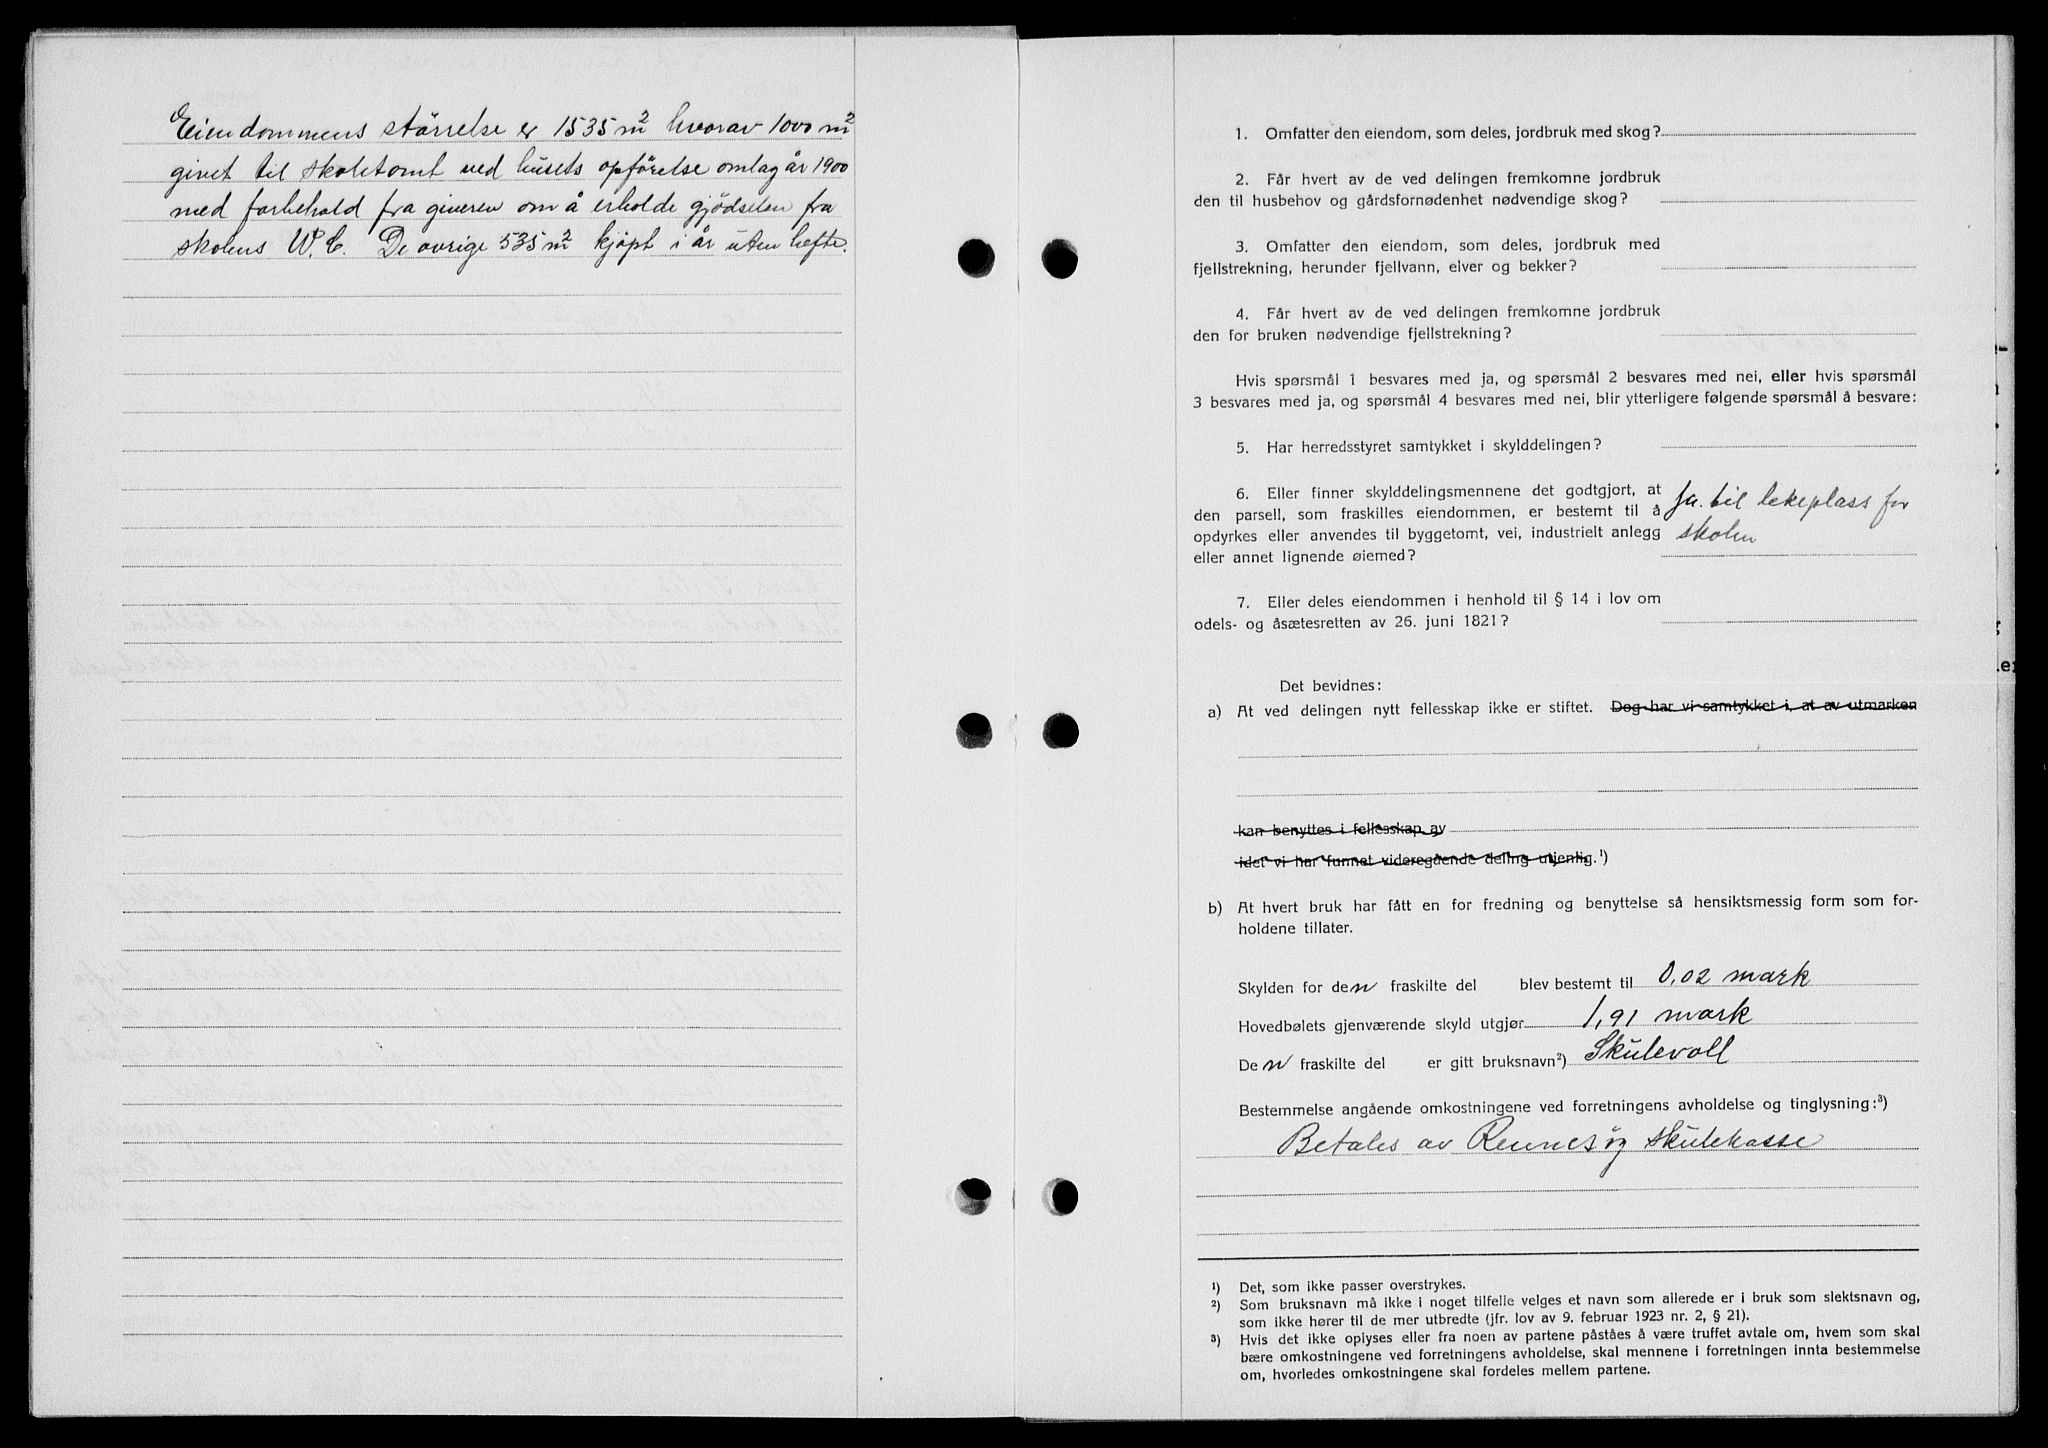 Eiendommens störrelse er 1535 m² hvorav 1000 m²
givet til skoletomt ved husets opförelse omlag år 1900
med forbehold fra giveren om å erholde gjödselen fra
skolens W.C. De øvrige 535 m² kjøpt i år uten hefte.
1. Omfatter den eiendom, som deles, jordbruk med skog?
2. Får hvert av de ved delingen fremkomne jordbruk
den til husbehov og gårdsfornødenhet nødvendige skog?
3. Omfatter den eiendom, som deles, jordbruk med
fjellstrekning, herunder fjellvann, elver og bekker?
4. Får hvert av de ved delingen fremkomne jordbruk
den for bruken nødvendige fjellstrekning?
Hvis spørsmål 1 besvares med ja, og spørsmål 2 besvares med nei, eller hvis spørsmål
3 besvares med ja, og spørsmål 4 besvares med nei, blir ytterligere følgende spørsmål å besvare:
5. Har herredsstyret samtykket i skylddelingen?
6. Eller finner skylddelingsmennene det godtgjort, at
den parsell, som fraskilles eiendommen, er bestemt til å
opdyrkes eller anvendes til byggetomt, vei, industrielt anlegg
eller annet lignende øiemed?
Ja. til lekeplass for
skolen
7. Eller deles eiendommen i henhold til § 14 i lov om
odels- og åsætesretten av 26. juni 1821?
Det bevidnes:
a) At ved delingen nytt fellesskap ikke er stiftet. Dog har vi samtykket i, at av utmarken
kan benyttes i fellesskap av
idet vi har funnet videregående deling utjenlig.¹)
b) At hvert bruk har fått en for fredning og benyttelse så hensiktsmessig form som for-
holdene tillater.
Skylden for den fraskilte del blev bestemt til 0,02 mark
Hovedbølets gjenværende skyld utgjør 1,91 mark
Den fraskilte del er gitt bruksnavn²) Skulevoll
Bestemmelse angående omkostningene ved forretningens avholdelse og tinglysning:³)
Betales av Rennesøy skulekasse
¹) Det, som ikke passer overstrykes.
²) Som bruksnavn må ikke i noget tilfelle velges et navn som allerede er i bruk som slektsnavn og,
som ikke hører til de mer utbredte (jfr. lov av 9. februar 1923 nr. 2, § 21).
³) Hvis det ikke oplyses eller fra noen av partene påståes å være truffet avtale om, hvem som skal
bære omkostningene ved forretningens avholdelse, skal mennene i forretningen innta bestemmelse
om, hvorledes omkostningene skal fordeles mellem partene.